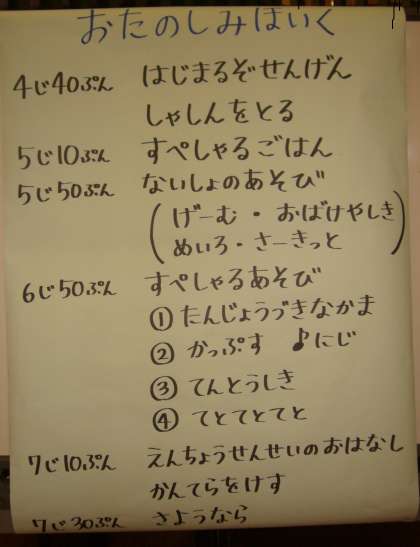 おたのしみほいく
4じ40ぷん はじまるぞせんげん
しゃしんをとる
5じ10ぷん すぺしゃるごはん
5じ50ぷん ないしょのあそび
(げーむ・おばけやしき
めいろ・さーきっと)
6じ50ぷん すぺしゃるあそび
① たんじょうづきなかま
② かっぷす ♪にじ
③ てんとうしき
④ てとてとてと
7じ10ぷん えんちょうせんせいのおはなし
かんてらをけす
7じ30ぷん さようなら